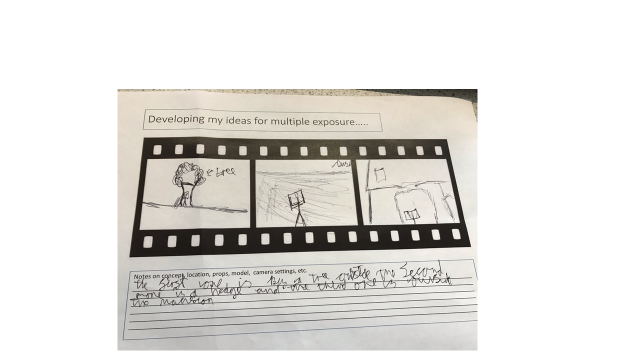 Developing my ideas for multiple exposure.....
tree
Notes on concept, location, props, model, camera settings, etc.
the first one is by a tree the second
one is a hedge and the third one is outside
the mansion